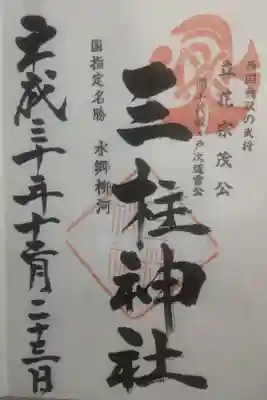 西国無双の武将
立花宗茂公
戸次道雪公
三柱神社
国指定名勝
水郷柳河
平成三十年十二月二十三日